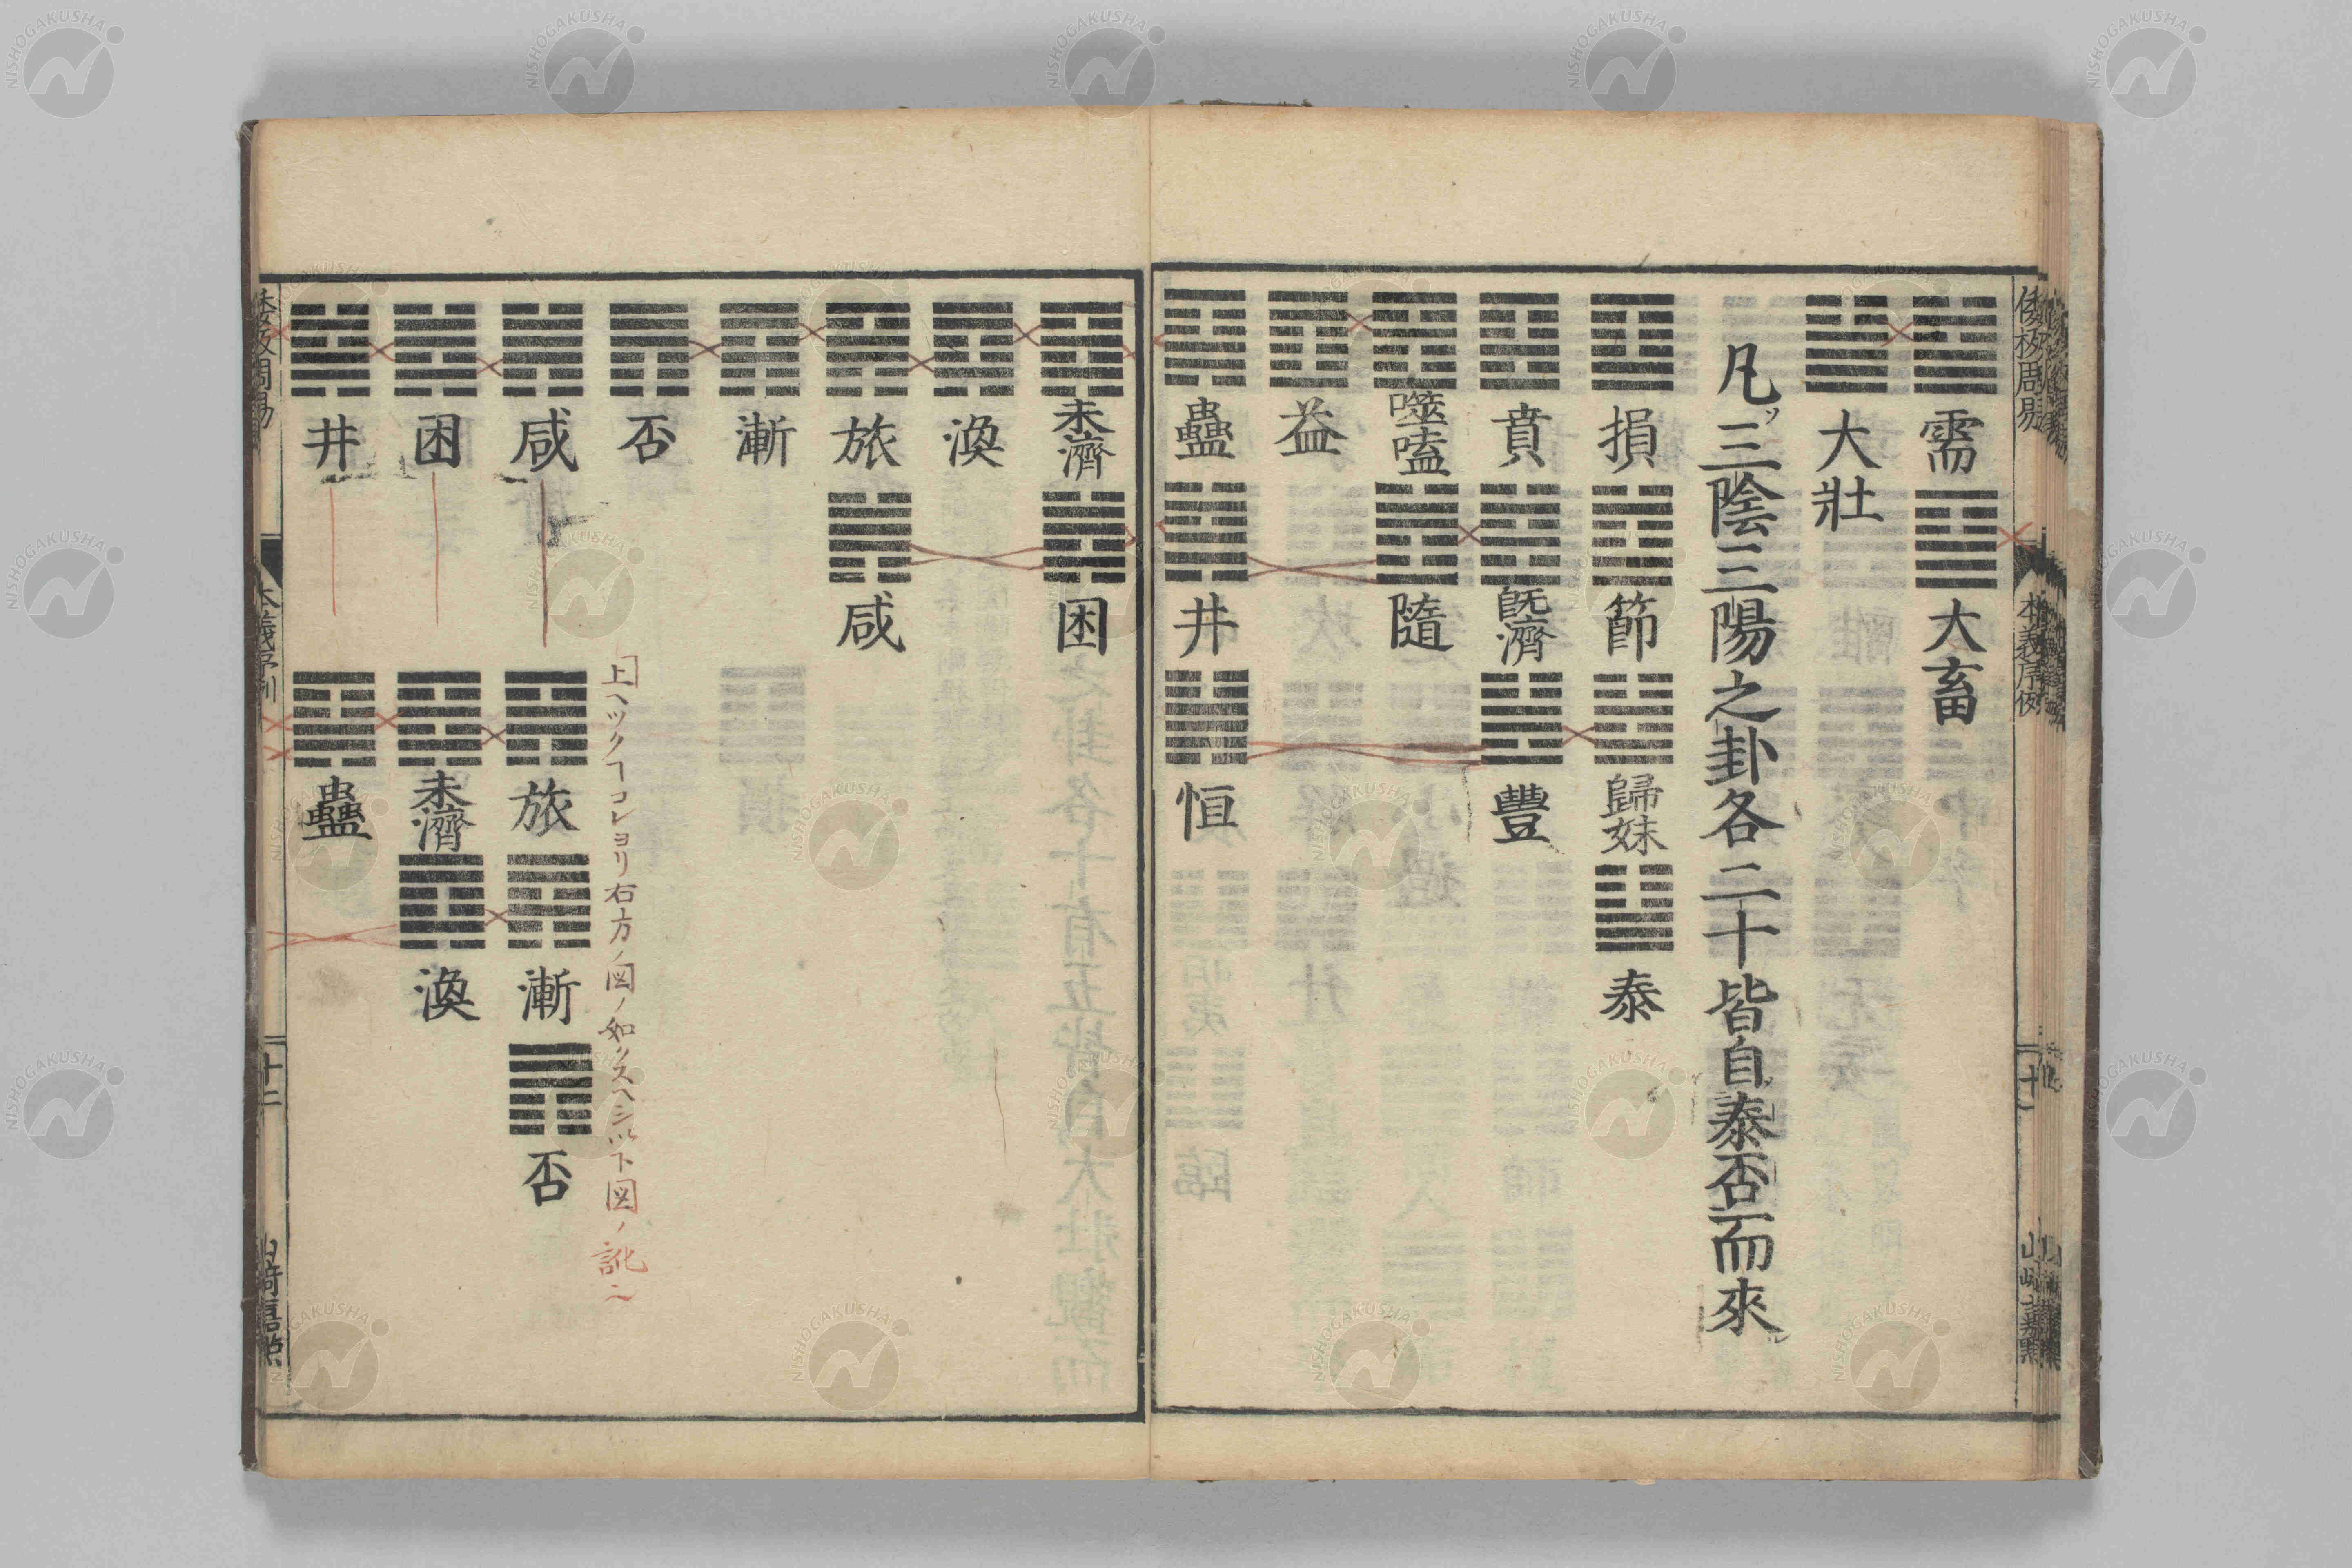 倭板周易
本義序例
十一
山崎嘉點
需 大畜
大壯
凡ソ三陰三陽之卦各二十皆自泰否而來
損 節 歸妹 泰
賁 旣濟 豐
噬嗑 隨
益
蠱 井 恒
未濟 困
渙
旅 咸
漸
否
上ヘツクヿコレヨリ右方ノ図ノ如クスヘシ以下図ノ訛ニ
咸 旅 漸 否
困 未濟 渙
井 蠱
倭板周易
本義序例
十二
山崎嘉點
NISHOGAKUSHA